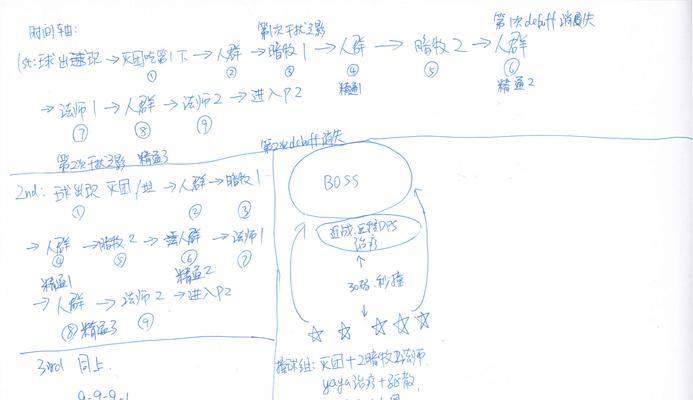 时间轴:
第1次干扰之影
第1次debuff消失
1st:球出现→灭团吃第1下→人群→暗牧1→人群→暗牧2→人群
① ② ③ ④ ⑤ ⑥
精通1 精通2
→法师1→人群→法师2→进入P2
⑦ ⑧ ⑨
第2次干扰之影 精通3
第2次debuff消失
2nd:球出现 灭团1 →人群→暗牧1
① ② ③
→人群→暗牧2→人群→法师1
④ ⑤ ⑥ ⑦
精通1 精通2
→人群→法师2→进入P2
⑧精通3 ⑨
BOSS
近战.远程DPS
治疗
30码.秒撞
3rd 同上
9-9-9-1
撞球组:灭团+2暗牧 法师
yaya治疗+驱散